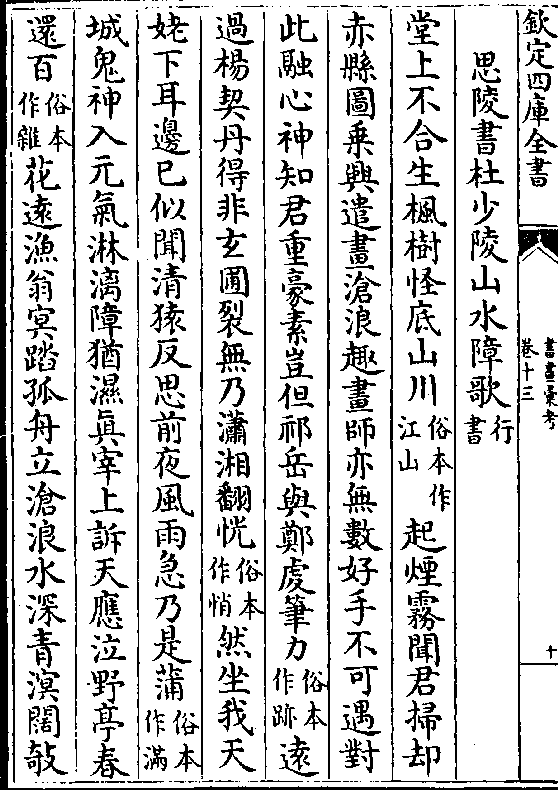 欽定四庫全書
書畫彙考
卷十三
十
思陵書杜少陵山水障歌行書
堂上不合生楓樹怪底山川俗本作江山起煙霧聞君掃却
赤縣圖乗興遣畫滄浪趣畫師亦無數好手不可遇對
此融心神知君重豪素豈但祁岳與鄭虔筆力俗本作跡遠
過楊契丹得非玄圃裂無乃瀟湘翻恍俗本作悄然坐我天
姥下耳邊已似聞清猿反思前夜風雨急乃是蒲俗本作滿
城鬼神入元氣淋漓障猶濕真宰上訴天應泣野亭春
還百俗本作雜花遠漁翁㝠踏孤舟立滄浪水深青溟闊敧